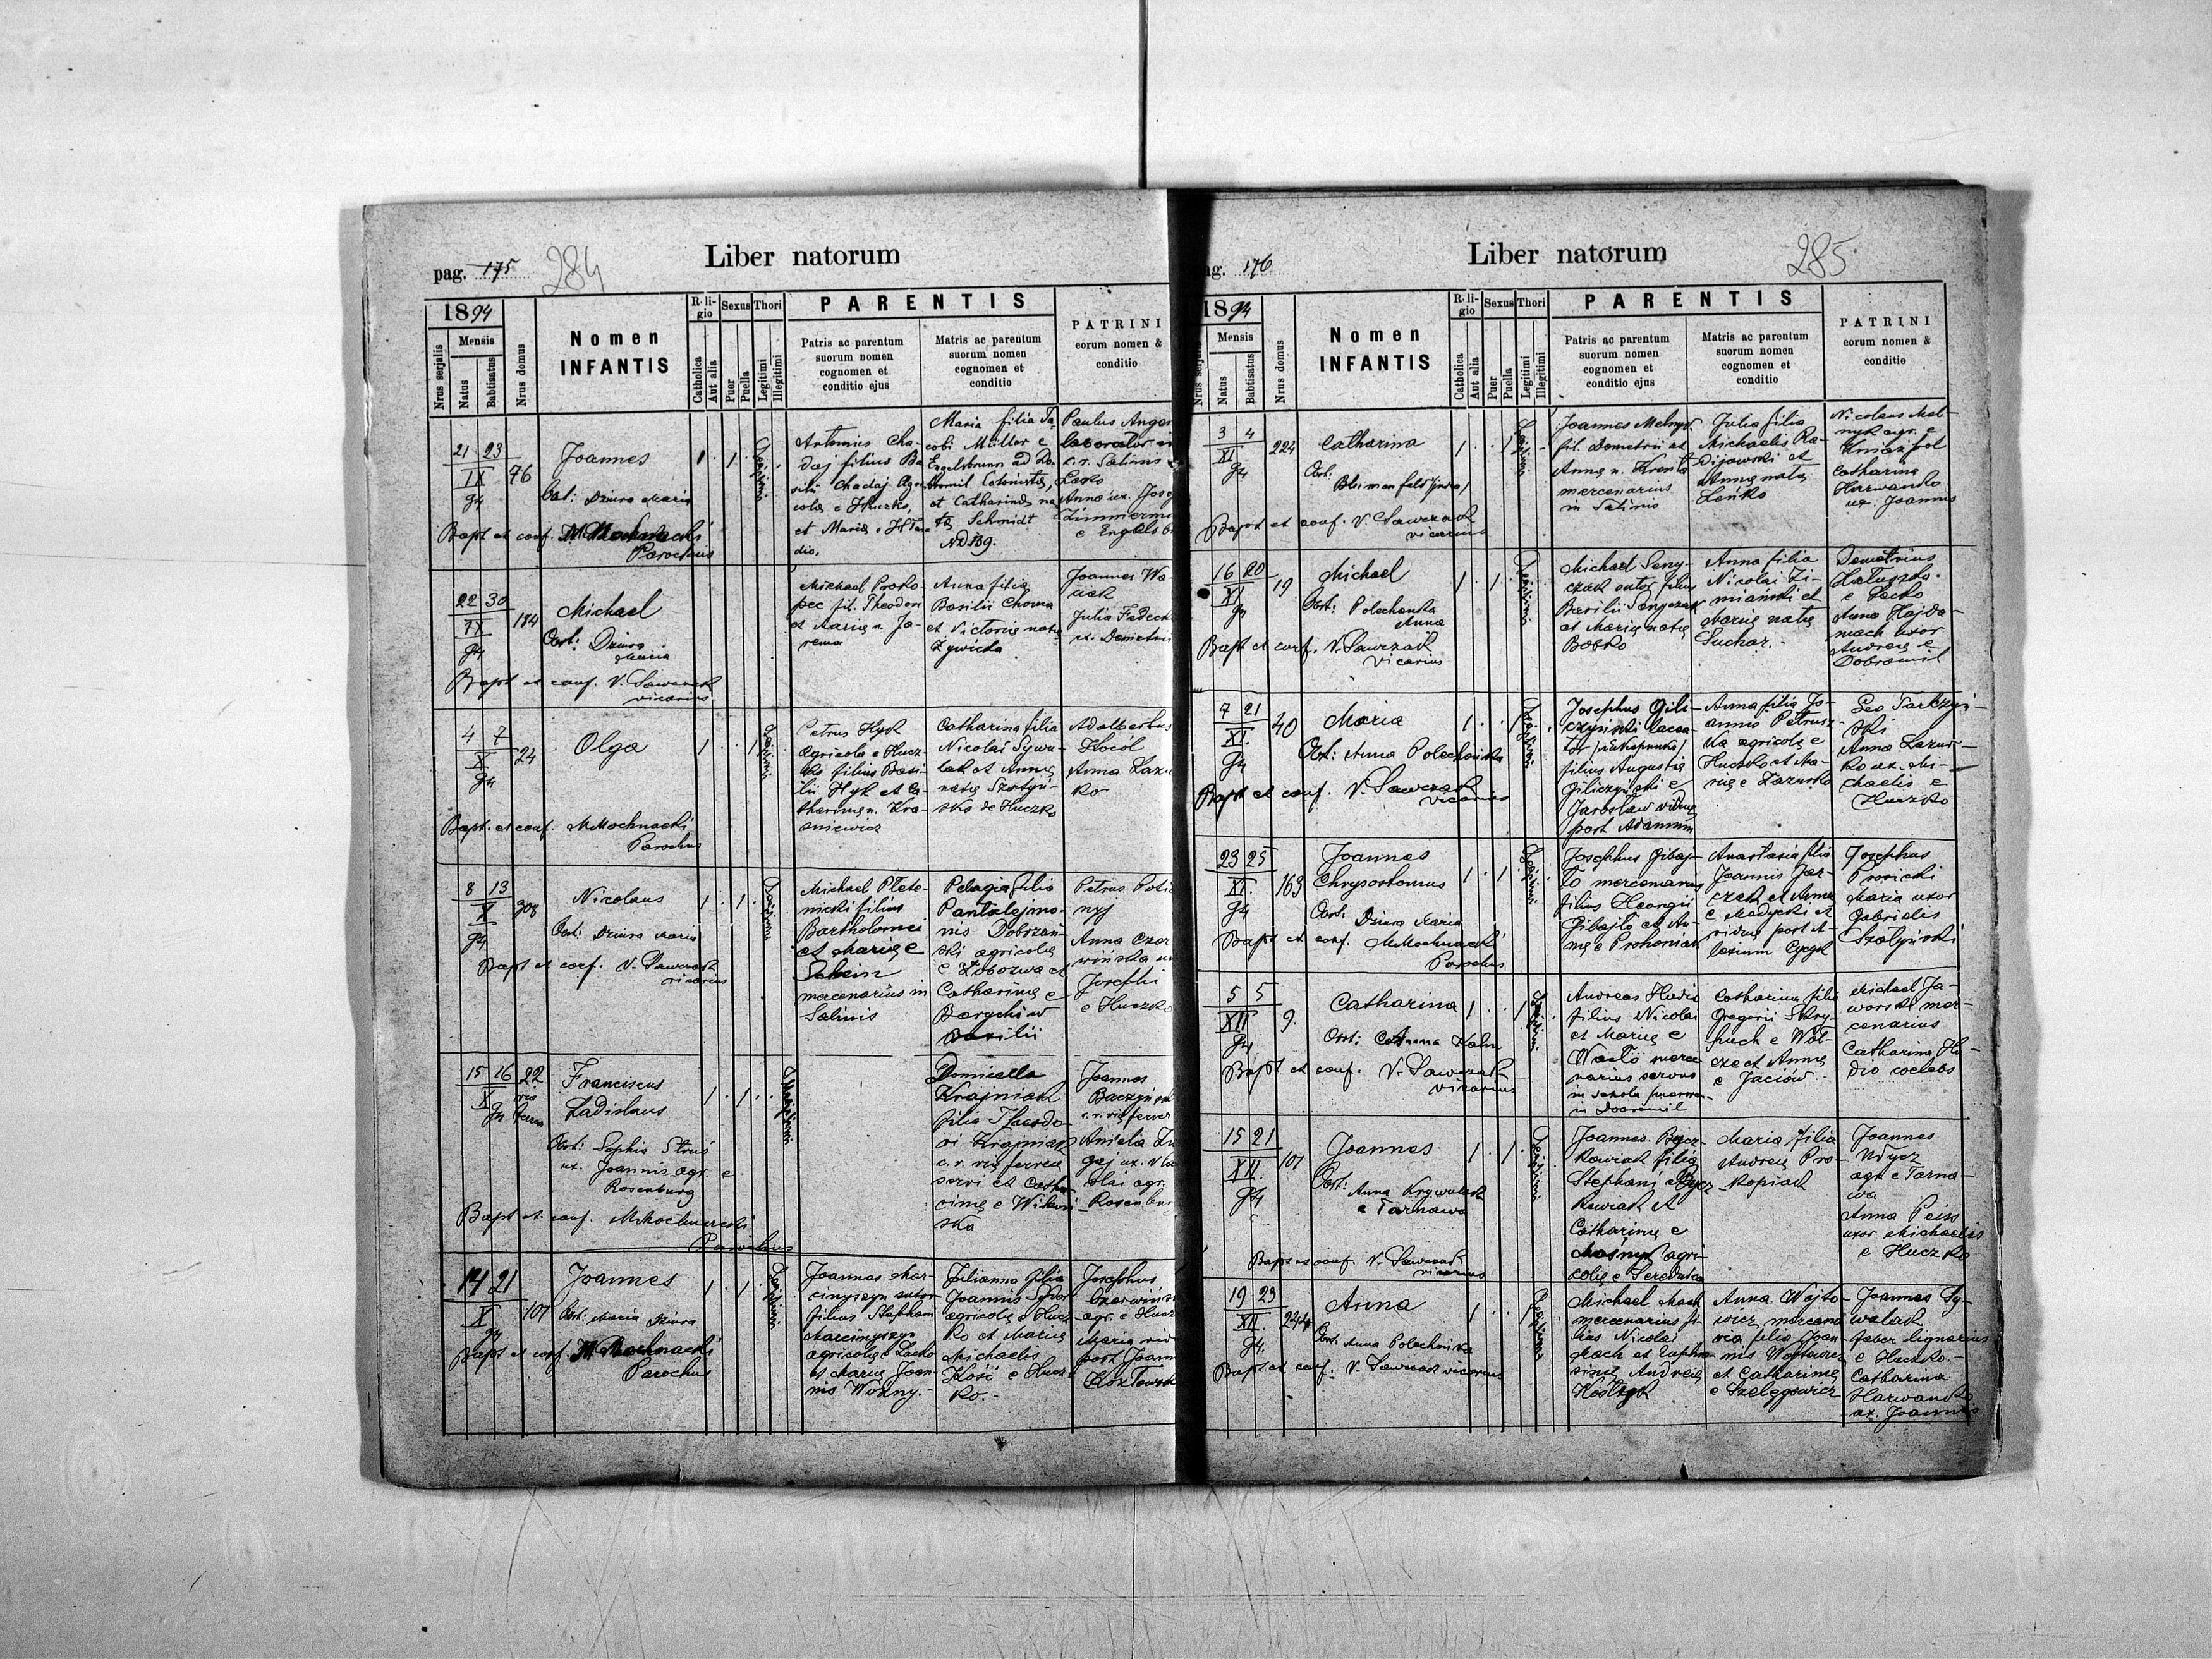 pag. 175 284
Liber natorum
1894
Nrus serjalis
Mensis
Natus
Babtisatus
Nrus domus
Nomen
INFANTIS
Religio
Catholica
Aut alia
Sexus
Puer
Puella
Thori
Legitimi
Illegitimi
PARENTIS
Patris ac parentum
suorum nomen
cognomen et
conditio ejus
Matris ac parentum
suorum nomen
cognomen et
conditio
PATRINI
eorum nomen &
conditio
21 23
IX
94
76
Joannes
Obst: Dziura Maria
Bapt et conf. M Mochnacki
Parochus
1 1
Legitimi
Antonius Cha-
daj filius Ba
silii Chadaj agri
cola e Huczko,
et Maria
Maria filia Ja
cobi Müller e
Engelsbrunn ad Do-
bromil
et Catharina na
ta Schmidt
ND 139.
Paulus Anger
laborator in
c.r. Salinis
Lacko
Anna ux. Jose
Zimmerma
e Engelsbr
22 30
IX
94
184
Michael
Obst: Dziura
Maria
Bapt et conf. V. Sawczak
vicarius
Michael Proko-
pec fil. Theodori
et Maria n. Ja-
rema
Anna filia
Basilii Choma
et Victoria nata
Żywicka
Joannes Wa
Julia Fedeck
ux. Demetrii
4 7
X
94
24
Olga
Bapt. et conf. M Mochnacki
Parochus
1 1
Legitimi
Petrus Hyk
agricola e Hucz-
ko filius Basi-
lii Hyk et Ca-
tharina n. Kra-
sniewicz
Catharina filia
Nicolai Sywu-
lak et Anna
nata Szotyń-
ska de Huczko
Adalbertus
Kocól
Anna Łazu
ko
8 13
X
94
308
Nicolaus
Obst: Dziura Maria
Bapt et conf. V. Sawczak
vicarius
1 1
Legitimi
Michael Plete-
nicki filius
Bartholomei
et Maria e
mercenarius in
Salinis
Pelagia filia
Pantalejmo-
nis Dobrzań-
ski agricola
e Zobozwa et
Catharina e
Basilii
Petrus
nyj
Anna Czer
wińska ux
Josephi
e Huczko
15 16
X
94
22
Franciscus
Ladislaus
Obst: Sophia Struś
ux. Joannis agr. e
Rosenburg
Bapt et conf. M Mochnacki
Parochus
1 1
Illegitimi
Domicella
Krajniak
filia Theodo-
ri Krajniak
c. r. via ferrea
servi et Catha
rina e
ska
Joannes
c.r. via ferrea
Aniela
gaj ux.
agr.
Rosenbur
14 21
X
94
101
Joannes
Obst: Maria Dziura
Bapt et conf M Mochnacki
Parochus
1 1
Legitimi
Joannes Mar-
cinyszyn sutor
filius Stephani
Marcinyszyn
agricola e Lacko
et Maria Joan-
nis Woźny.-
Julianna filia
Joannis
agricola e Hucz
ko et Maria
Michaelis
Kość e Hucz
ko.-
Josephus
Czerwińs
agr. e Hucz
Maria vid
post Joann
Kozłowsk
ag. 176
Liber natorum
285
1894
Nrus serjalis
Mensis
Natus
Babtisatus
Nrus domus
Nomen
INFANTIS
Religio
Catholica
Aut alia
Sexus
Puer
Puella
Thori
Legitimi
Illegitimi
PARENTIS
Patris ac parentum
suorum nomen
cognomen et
conditio ejus
Matris ac parentum
suorum nomen
cognomen et
conditio
PATRINI
eorum nomen &
conditio
3 4
XI
94
224
Catharina
Obst:
Blumenfeld
Bapt et conf. V. Sawczak
vicarius
1 1
Legitimi
Joannes Melnyk
fil. Demetrii et
Anna n. Krenta
mercenarius
in Salinis
Julia filia
Michaelis Ra-
dijowski et
Anna nata
Leńko
Nicolaus Mel-
nyk agr. e
Kniażpol
Catharina
Harwanko
ux. Joannis
16 20
XI
94
19
Michael
Obst: Polechońska
Anna
Bapt et conf. V. Sawczak
vicarius
1 1
Legitimi
Michael Seny-
czak sutor filius
Basilii Senyczak
et Maria nata
Bobko
Anna filia
Nicolai Zi-
miański et
Maria nata
Suchar.-
Demetrius
Hałuszka
e Lacko
Anna Hajda-
mach uxor
Andrea e
Dobromil
7 21
XI.
94
40
Maria
Obst: Anna Polechońska
Bapt et conf. V. Sawczak
vicarius
1 1
Legitimi
Josephus Gili-
czyński
filius Augusti
Giliczyński e
Jarosław vidua
post Adamum
Anna filia Jo-
annis Petrusz-
ka agricola e
Huczko et Ma-
ria e Łazurko
Leo Tarczyń-
ski
Anna Łazur-
ko ux. Mi-
chaelis e
Huczko
23 25
XI.
94
163
Joannes
Chrysostomus
Obst:
Dziura Maria
Bapt et conf. M Mochnacki
Parochus
1 1
Legitimi
Josephus Gibaj-
ło mercenarius
filius Georgii
Gibajło et An-
na e Prohoniak
Anastasia filia
Joannis Jar-
czak et Anna
e Madycki et
vidua post A-
lexium Gyga
Josephus
Prosicki
Maria uxor
Gabrielis
Szałyński
5 5
XII
94
9.
Catharina
Obst: Anna Kahn
Bapt et conf. V. Sawczak
vicarius
1 1
Legitimi
Andreas Hudio
filius Nicolai
et Maria e
merce
narius servus
in schola
in Dobromil
Catharina filia
Gregorii Skry-
puch e Woł-
cze et Anna
e Jaciów.-
Michael Ja-
worski mer-
cenarius
Catharina Hu-
dio coelebs
15 21
XII.
94
101
Joannes
Obst:
Anna Krywulak
e Tarnawa
Bapt et conf. V. Sawczak
vicarius
1 1
Legitimi
Joannes Bycz-
kowiak filius
Stephani Bycz-
kowiak et
Catharina e
agri-
cola e Serednica
Maria filia
Andrea Pro-
kopiak
Joannes
Wdycz
agr e Tarna-
wa
Anna Peiss
uxor Michaelis
e Huczko
19 23
XII.
94.
244
Anna
Obst. Anna Polechońska
Bapt et conf. V. Sawczak vicarius
1 1
Legitimi
Michael Mach
mercenarius fi-
lius Nicolai
Mach et Euphro-
sina Andrea
Kostyk
Anna Wojto-
wicz mercena
ria filia Joan-
nis Wojtowicz
et Catharina
e Szelęgowicz
Joannes Sy-
wulak
faber lignarius
e Huczko.-
Catharina
Harwanko
ux. Joannis